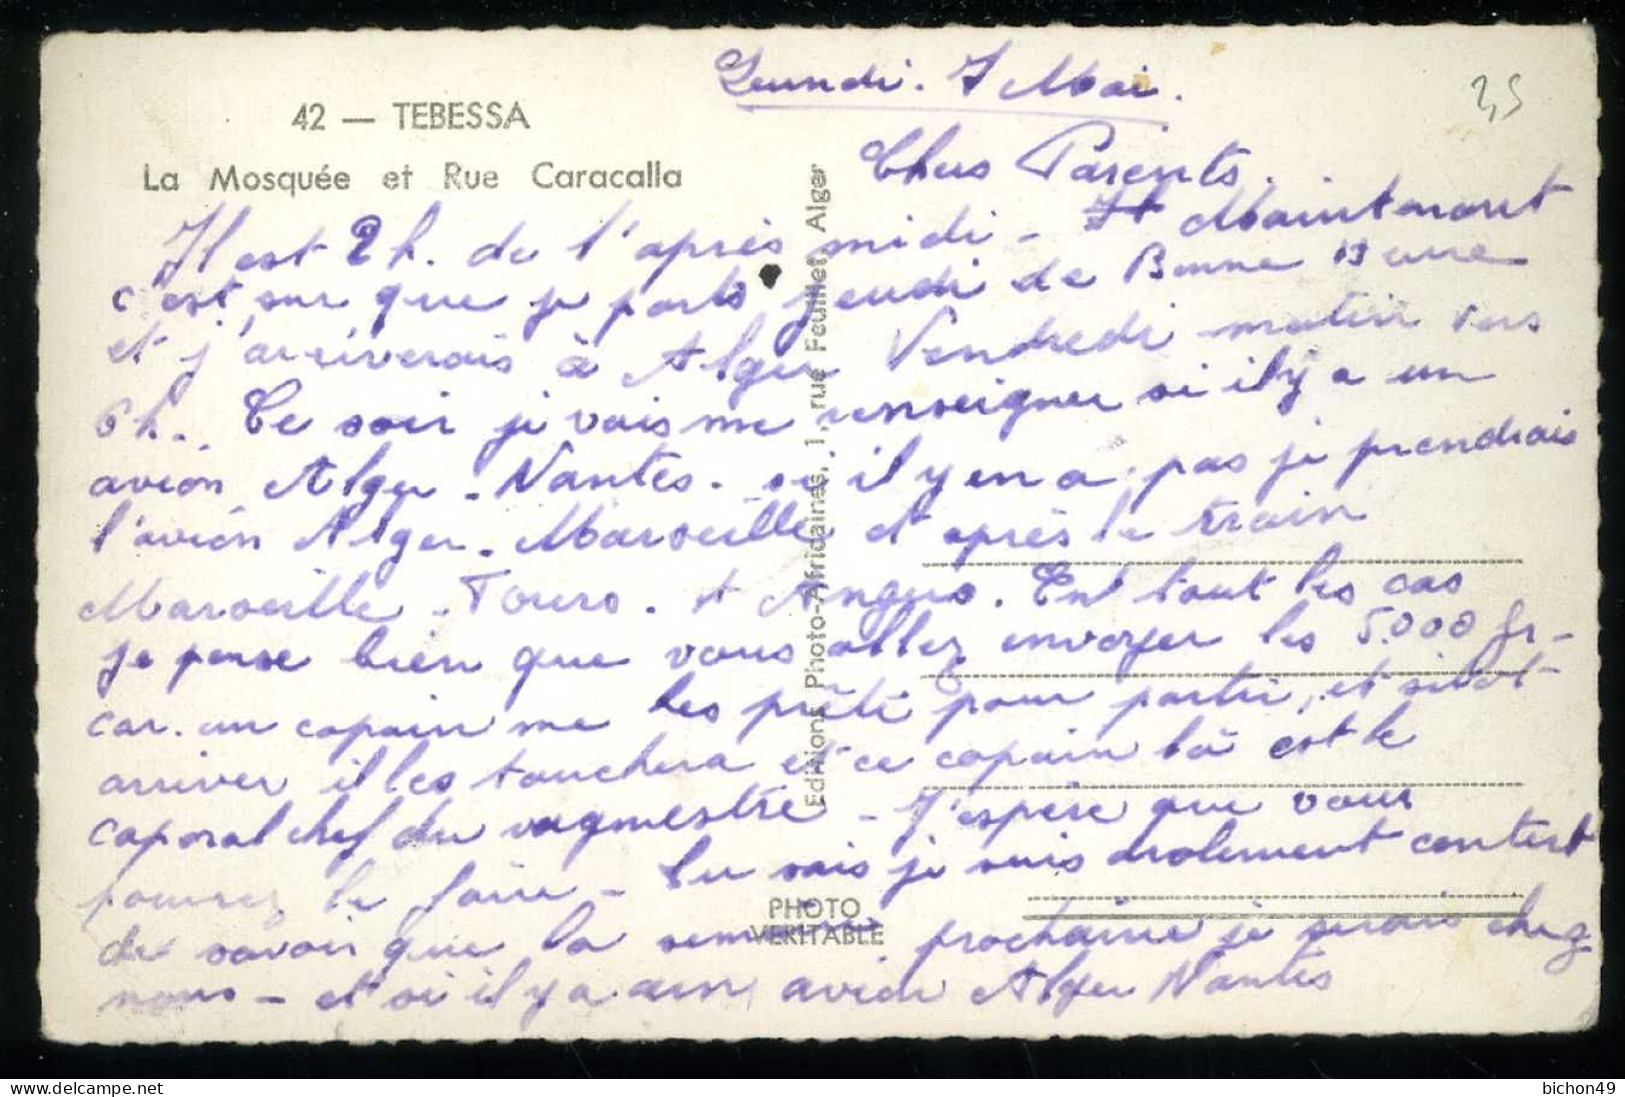 Leundi. 7 Mai.
25
42 — TEBESSA
La Mosquée et Rue Caracalla
Chers Parents.
Il est 2 h. de l'après midi - It Maintenant
c'est sur que je parts jeudi de Bonne 13 eure
et j'arriverais à Alger Vendredi matin vers
6h. Ce soir je vais me renseigner si il y a un
avion Alger - Nantes. si il y en a pas je prendrais
l'avion Alger - Marseille et après le train
Marseille - Tours. et Angers. En tout les cas
je pense bien que vous allez envoyer les 5.000 fr-
car. un copain me les prêté pour partir, et
arriver il les touchera et ce copain là est le
caporal chef du vagmestre - J'espère que vous
pourrez le faire - tu sais je suis drolement content
de savoir que la semaine prochaine je serais chez
nous - et si il y a un avion Alger Nantes
Editions Photo-Africaines, 1, rue Feuillet Alger
PHOTO
VERITABLE
bichon49